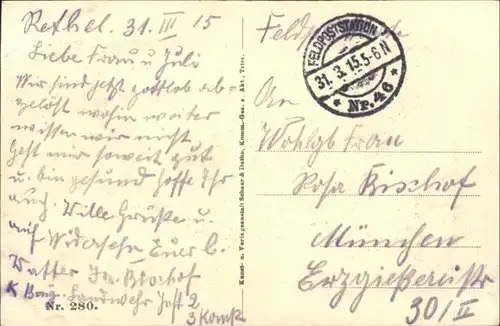 Rethel. 31. III 15
Liebe Frau u Juli
Wir sind jetzt gottlob ab=
gelöst wohin weiter
wissen wir nicht
Geht mir soweit gut
u. bin gesund hoffe Ihr
auch. Viele Grüße u.
auf Wiedersehn Euer l.
Vatter Bischof
K Bayr. Landwehr Inf 2
3 Komp
Nr. 280.
Kunst- u. Verlagsanstalt Schaar & Dathe, Komm.-Ges. a. Akt., Trier.
FELDPOSTSTATION
31. 3. 15. 5-6 N
* Nr. 46 *
An
Wohlgb Frau
Rosa Bischof
München
Erzgießereistr
30/II